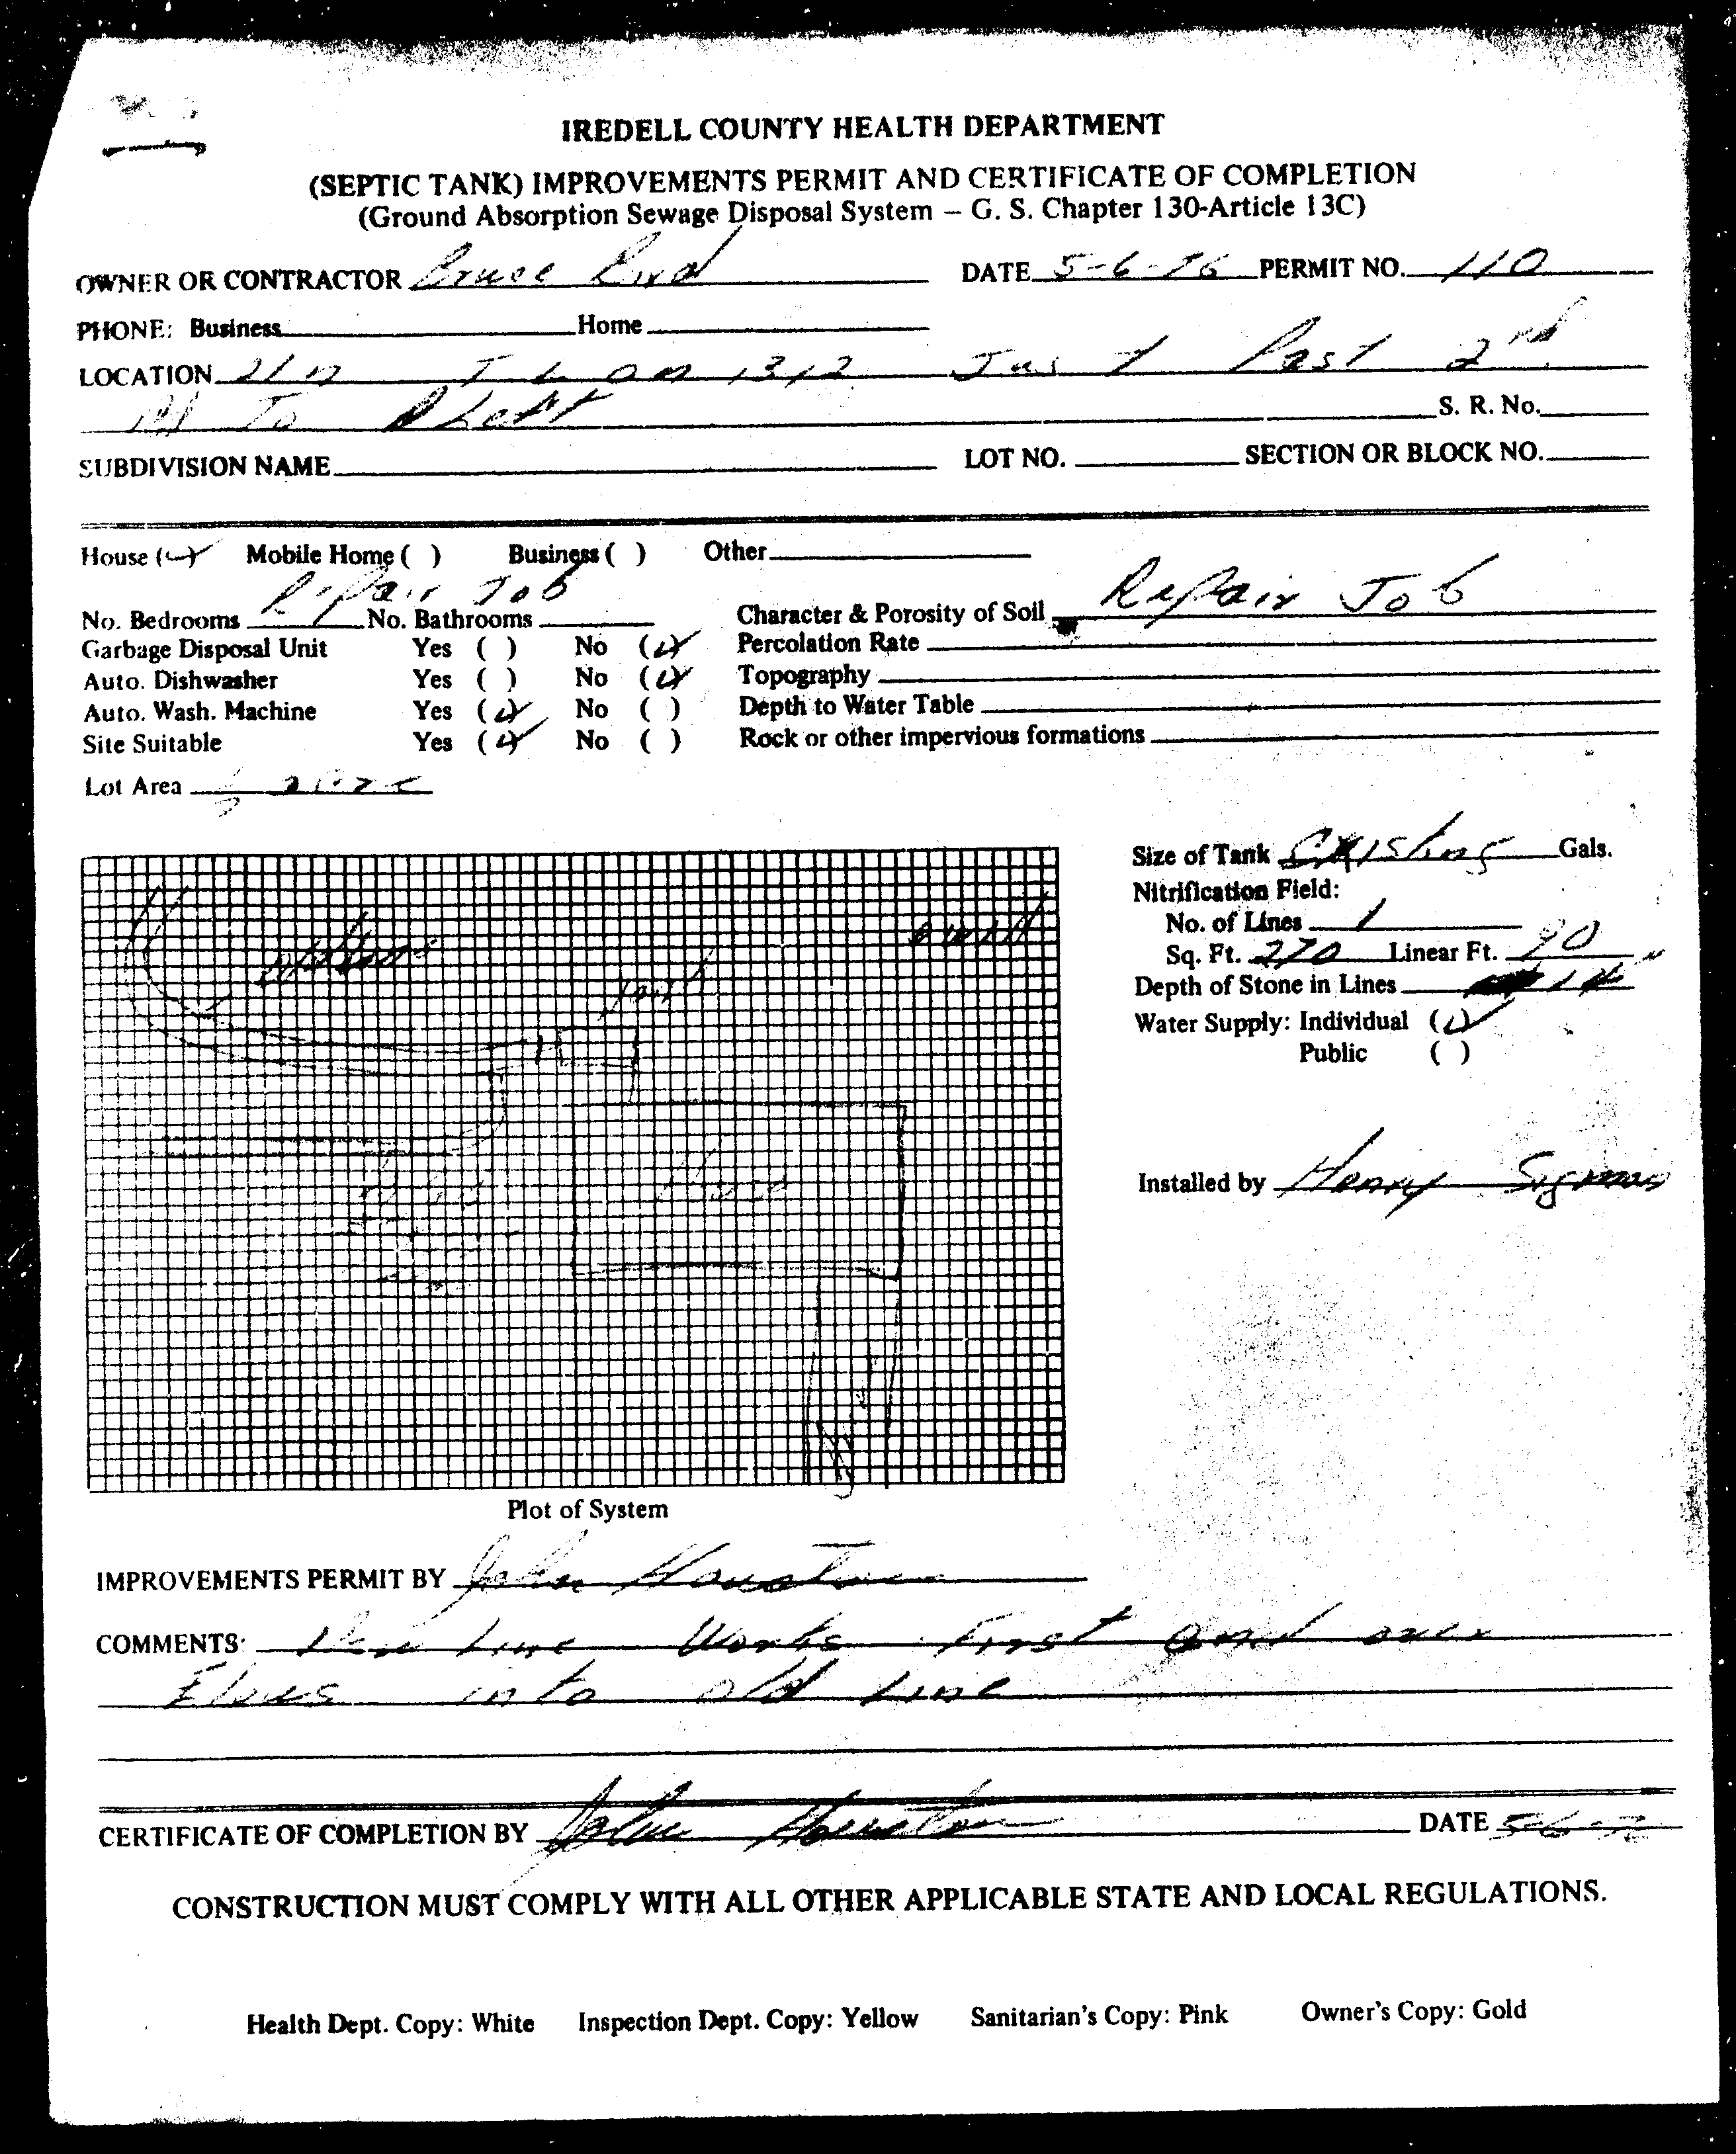 IREDELL COUNTY HEALTH DEPARTMENT
(SEPTIC TANK) IMPROVEMENTS PERMIT AND CERTIFICATE OF COMPLETION
(Ground Absorption Sewage Disposal System – G. S. Chapter 130-Article 13C)
OWNER OR CONTRACTOR Bruce DATE 5-6-76 PERMIT NO. 110
PHONE: Business Home
LOCATION T L on 1312 Just Past 2nd
Rd To Left S. R. No.
SUBDIVISION NAME LOT NO. SECTION OR BLOCK NO.
House (✓) Mobile Home ( ) Business ( ) Other
Repair Job
No. Bedrooms No. Bathrooms Character & Porosity of Soil Repair Job
Garbage Disposal Unit Yes ( ) No (✓) Percolation Rate
Auto. Dishwasher Yes ( ) No (✓) Topography
Auto. Wash. Machine Yes (✓) No ( ) Depth to Water Table
Site Suitable Yes (✓) No ( ) Rock or other impervious formations
Lot Area
Size of Tank Existing Gals.
Nitrification Field:
No. of Lines 1
Sq. Ft. 270 Linear Ft. 90
Depth of Stone in Lines 14
Water Supply: Individual (✓)
Public ( )
Installed by Henry
well
Tank
House
Plot of System
IMPROVEMENTS PERMIT BY John Houston
COMMENTS: New Line Works First and over
Flows into old Line
CERTIFICATE OF COMPLETION BY John Houston DATE 5-6-76
CONSTRUCTION MUST COMPLY WITH ALL OTHER APPLICABLE STATE AND LOCAL REGULATIONS.
Health Dept. Copy: White Inspection Dept. Copy: Yellow Sanitarian's Copy: Pink Owner's Copy: Gold